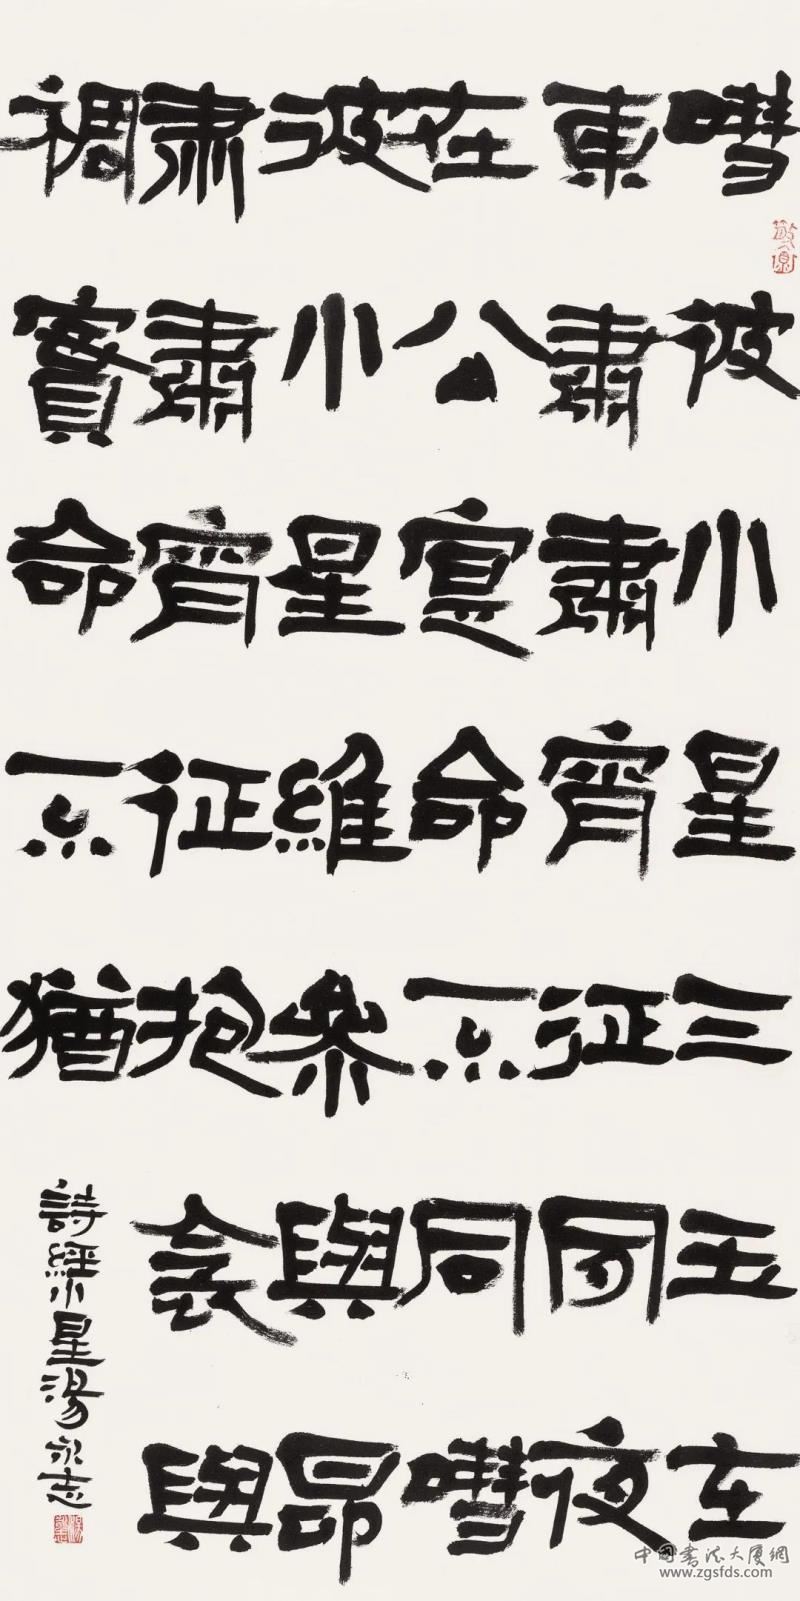 嘒彼小星三五在
東肅肅宵征夙夜
在公寔命不同嘒
彼小星維參與昴
肅肅宵征抱衾與
裯實命不猶
詩經小星湯永志
中國书法大厦網
www.zgsfds.com